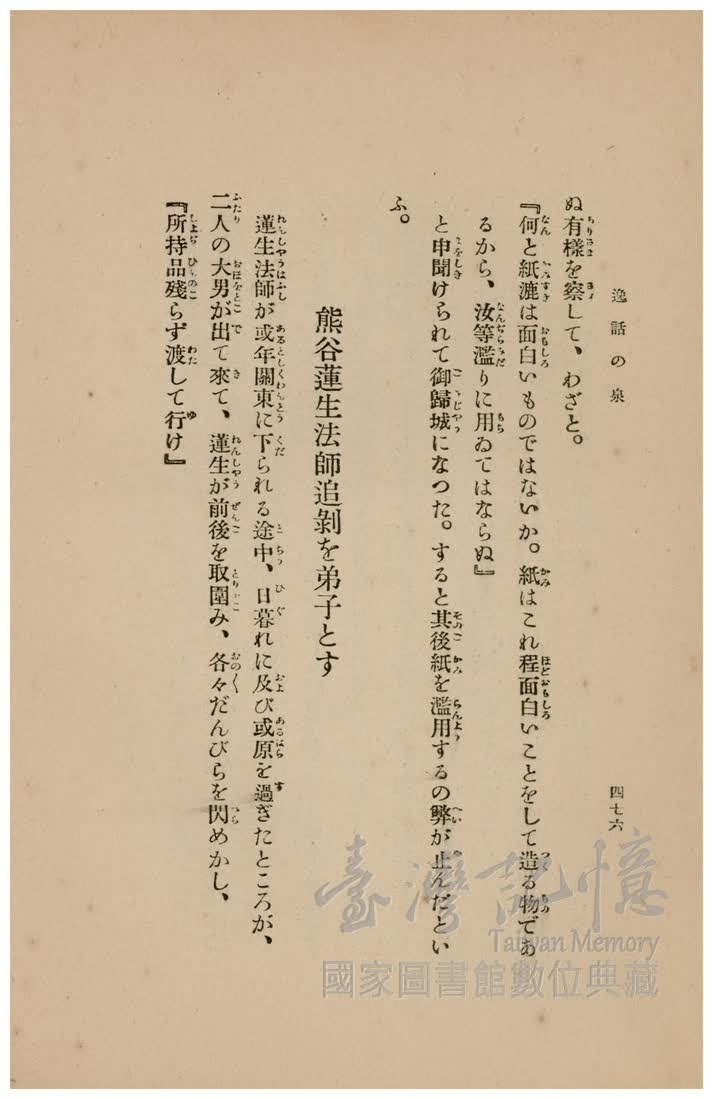 逸話の泉
四七六
ぬ有樣を察して、わざと。
『何と紙漉は面白いものではないか。紙はこれ程面白いことをして造る物であ
るから、汝等濫りに用ゐてはならぬ』
と申聞けられて御歸城になつた。すると其後紙を濫用するの弊が止んだとい
ふ。
熊谷蓮生法師追剝を弟子とす
蓮生法師が或年關東に下られる途中、日暮れに及び或原を過ぎたところが、
二人の大男が出て來て、蓮生が前後を取圍み、各々だんびらを閃めかし、
『所持品殘らず渡して行け』
臺灣記憶
Taiwan Memory
國家圖書館數位典藏